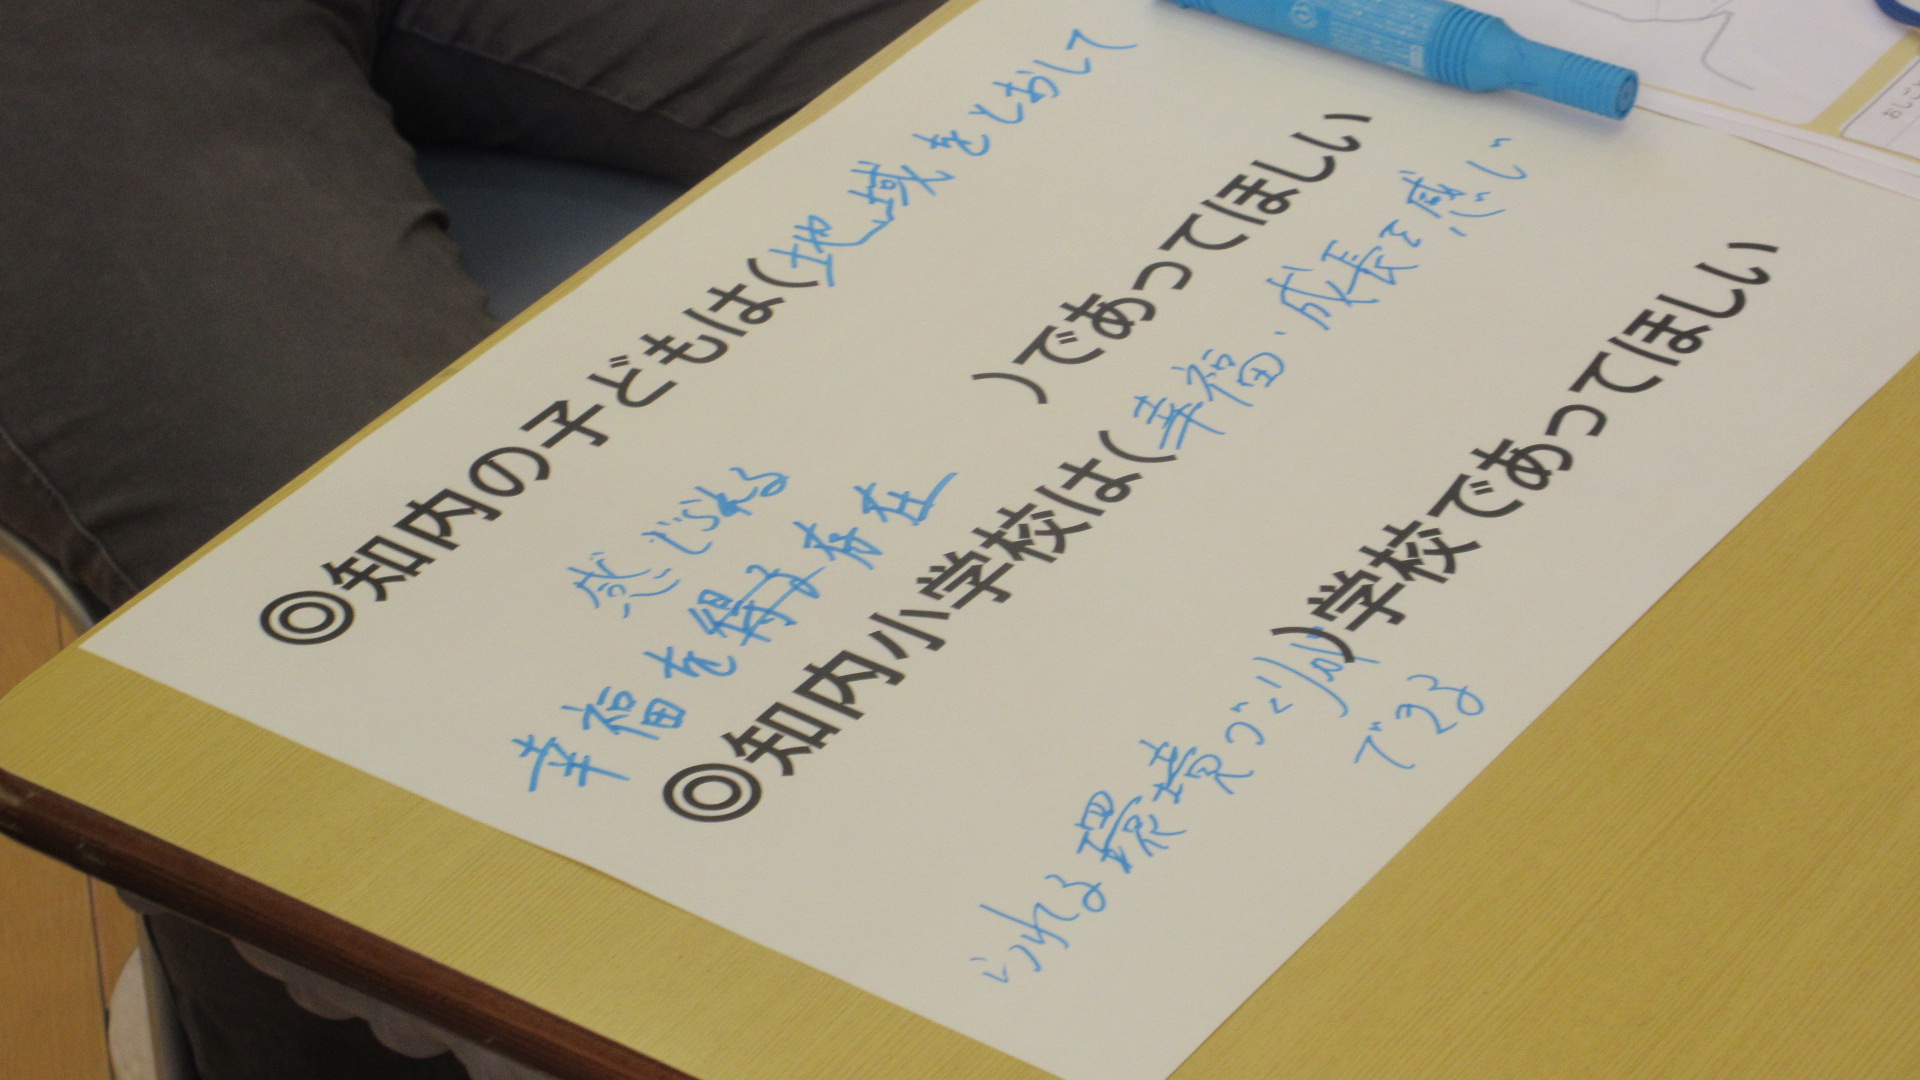 ◎知内の子どもは(地域をとおして
感じられる
幸福を得る存在
)であってほしい
◎知内小学校は(幸福、成長を感じ
られる環境づくりが
できる
)学校であってほしい